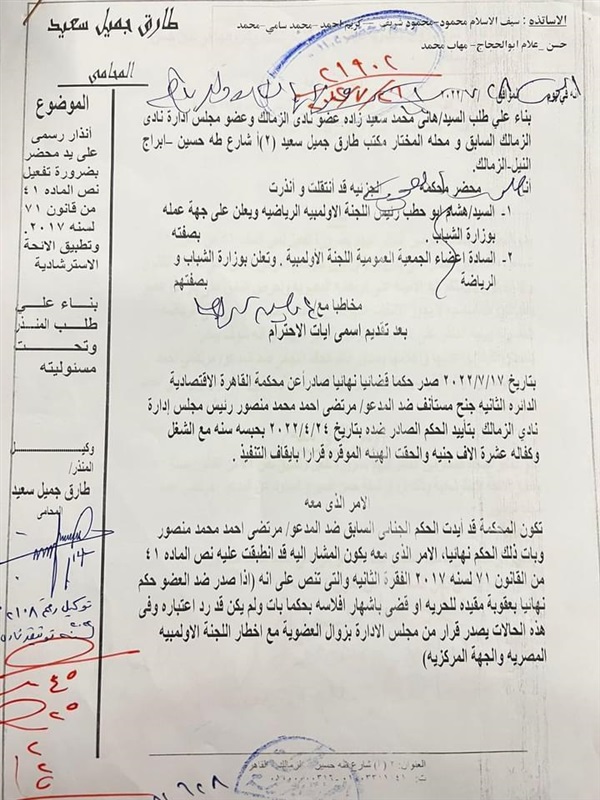 الاساتذه : سيف الاسلام محمود-محمود شريف – كريم احمد-محمد سامي-محمد
حسن -علام ابوالحجاج – مهاب محمد
طارق جميل سعيد
المحامى
الموضوع
أنذار رسمى
على يد محضر
بضرورة تفعيل
نص الماده ٤١
من قانون ٧١
لسنه ٢٠١٧.
وتطبيق الائحة
الاسترشادية
بناء علي
طلب المنذر
وتحت
مسئوليته
وكيل
المنذر/
طارق جميل سعيد
المحامى
توكيل رقم ٢١٠٨
٤٥
٢٥
٢
٢١٩٠٢
انه في يوم الموافق / /٢٠٢٢
بناء علي طلب السيد/هانى محمد سعيد زاده عضو نادى الزمالك وعضو مجلس ادارة نادى
الزمالك السابق و محله المختار مكتب طارق جميل سعيد (٢)أ شارع طه حسين –ابراج
النيل-الزمالك.
انا محضر محكمة الجزئيه قد انتقلت و انذرت
١- السيد/هشام ابو حطب رئيس اللجنة الاولمبيه الرياضيه ويعلن على جهة عمله
بوزارة الشباب . بصفته
٢- السادة اعضاء الجمعية العمومية اللجنة الاولمبية . وتعلن بوزارة الشباب و
الرياضة بصفتهم
مخاطبا مع
بعد تقديم اسمى ايات الاحترام
بتاريخ ٢٠٢٢/٧/١٧ صدر حكما قضائيا نهائيا صادرأعن محكمة القاهرة الاقتصادية
الدائره الثانيه جنح مستأنف ضد المدعو/ مرتضى احمد محمد منصور رئيس مجلس إدارة
نادي الزمالك بتأييد الحكم الصادر ضده بتاريخ ٢٠٢٢/٤/٢٤ بحبسه سنه مع الشغل
وكفاله عشرة الاف جنيه والحقت الهيئه الموقره قرارا بايقاف التنفيذ .
الامر الذى معه
تكون المحكمة قد ايدت الحكم الجنائى السابق ضد المدعو/ مرتضى احمد محمد منصور
وبات ذلك الحكم نهائيا، الامر الذى معه يكون المشار اليه قد انطبقت عليه نص الماده ٤١
من القانون ٧١ لسنه ٢٠١٧ الفقرة الثانيه والتى تنص على انه (اذا صدر ضد العضو حكم
نهائيا بعقوبة مقيده للحريه او قضى باشهار افلاسه بحكما بات ولم يكن قد رد اعتباره وفى
هذه الحالات يصدر قرار من مجلس الادارة بزوال العضوية مع اخطار اللجنة الاولمبيه
المصريه والجهة المركزيه)
العنوان: ٢(أ) شارع طه حسين الزمالك القاهرة